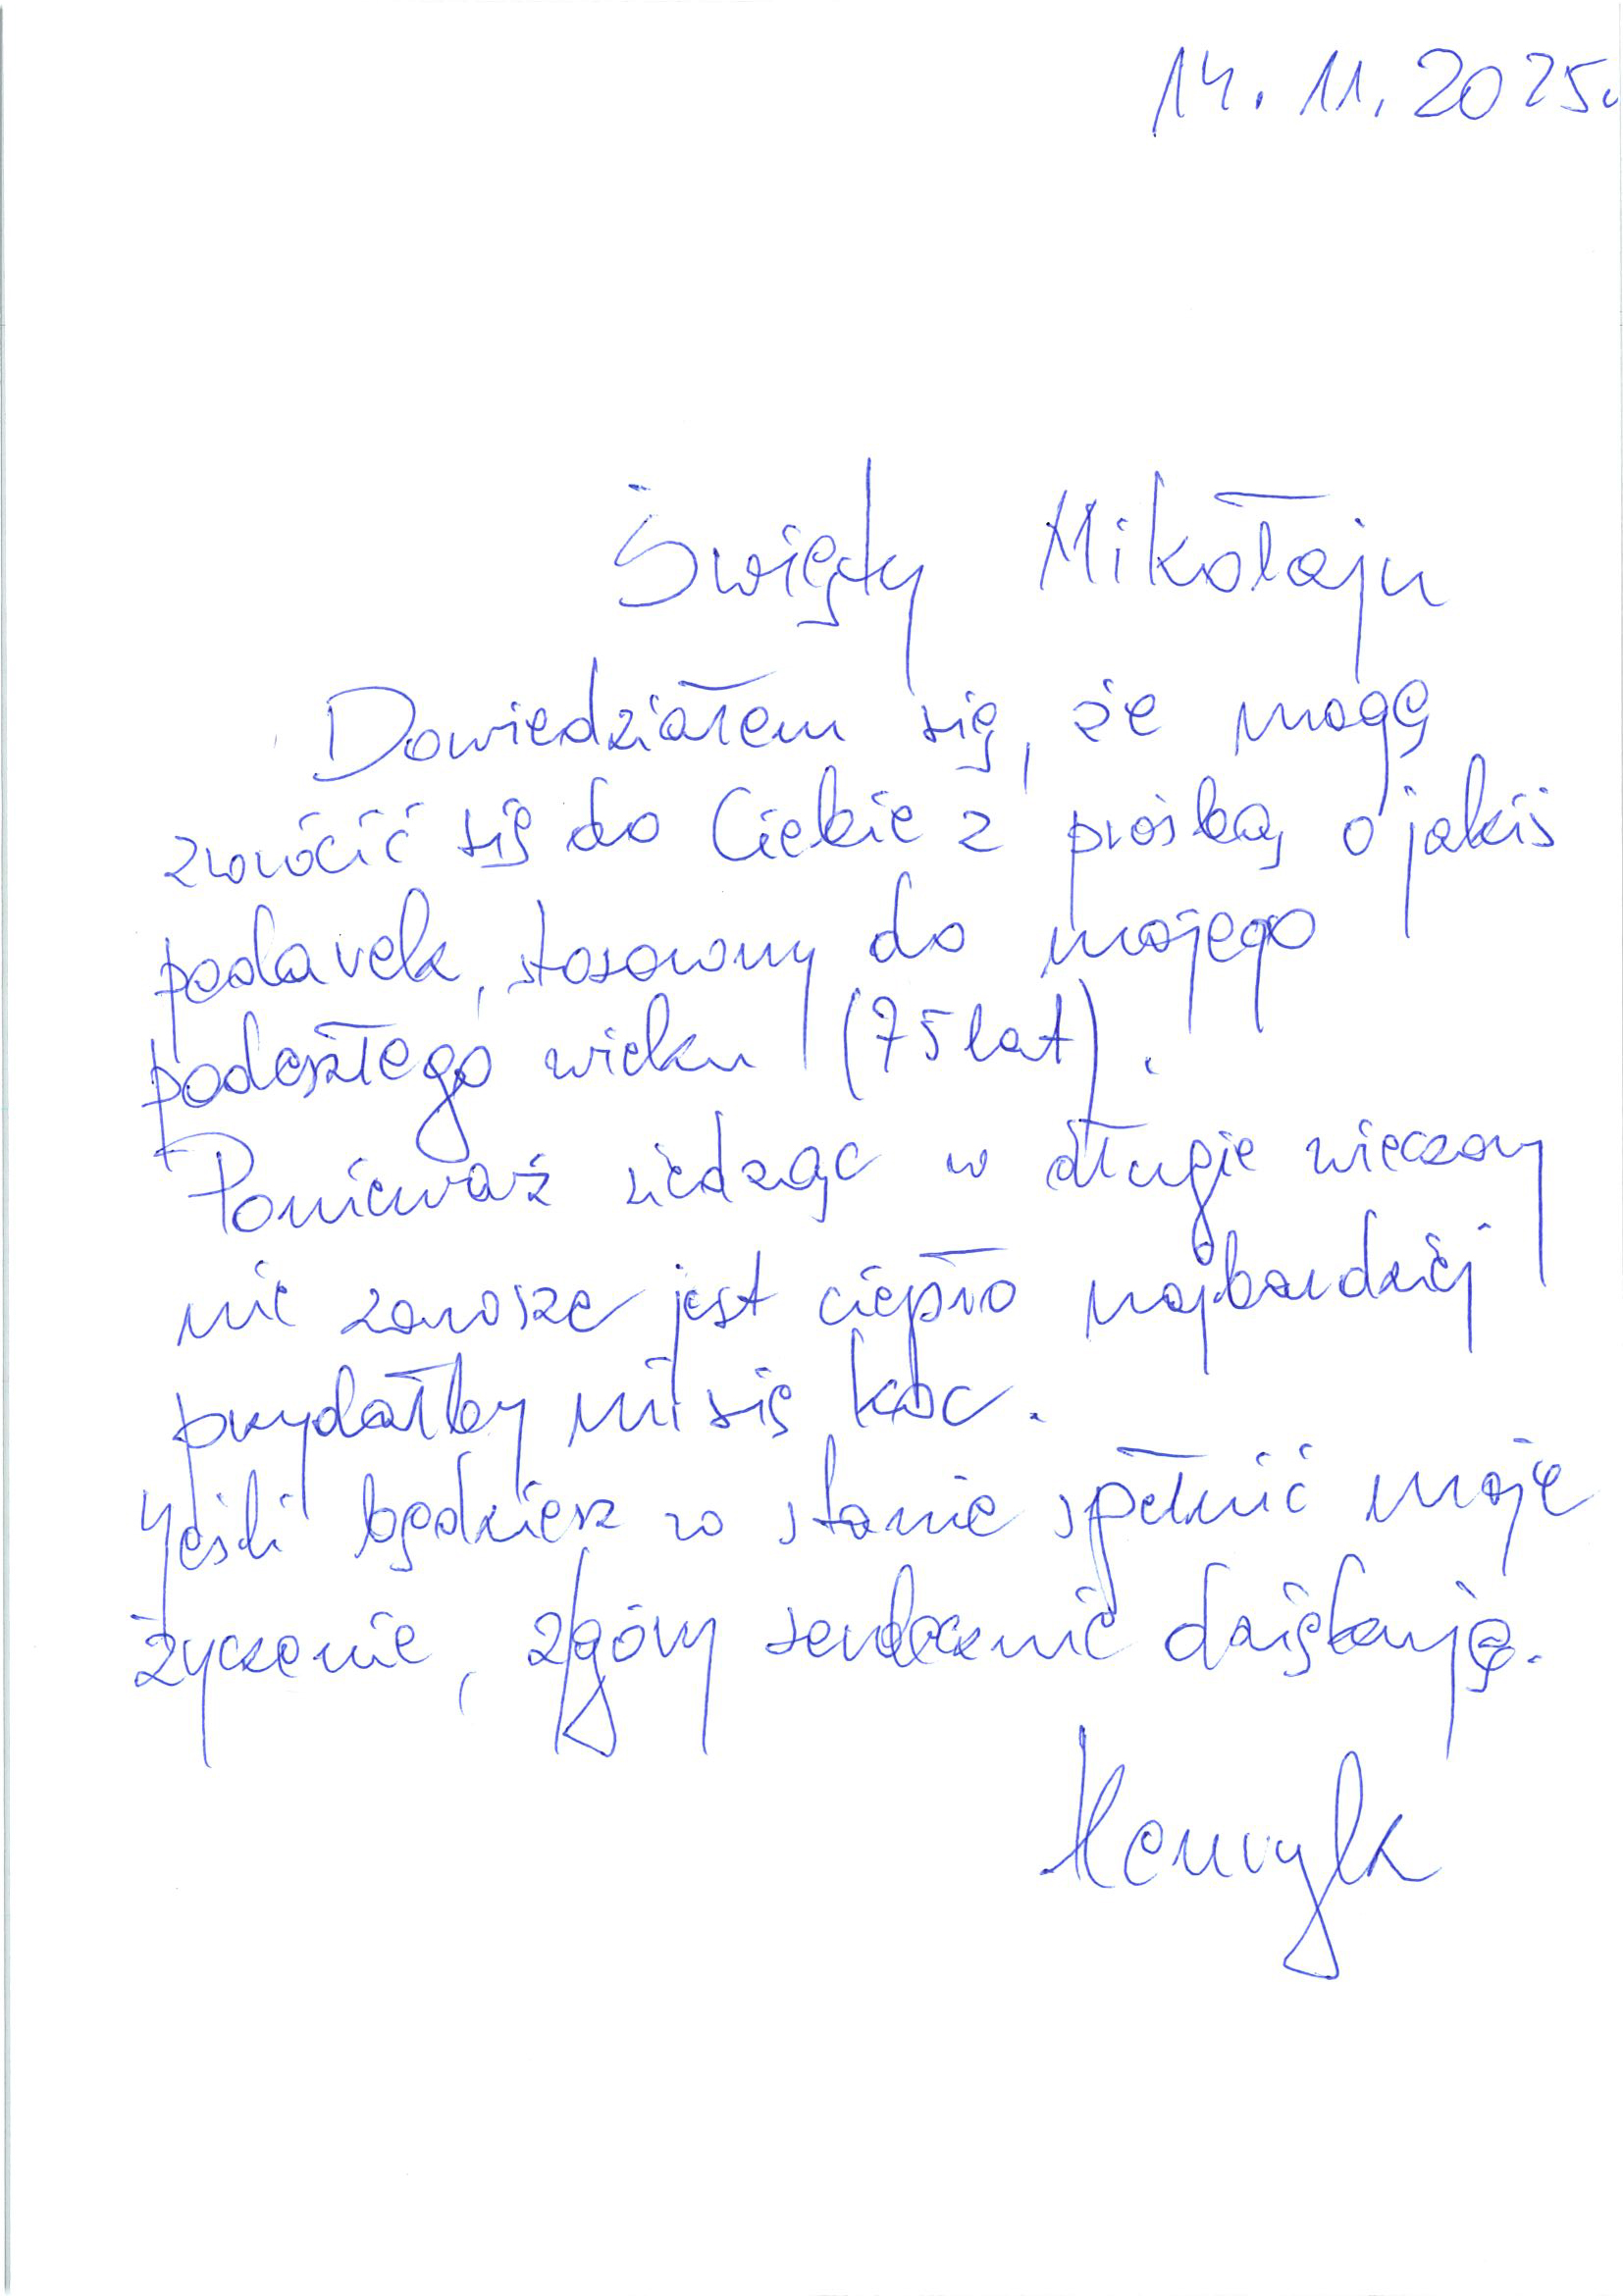 14.11.2025.
Święty Mikołaju
Dowiedziałem się, że mogę
zwrócić się do Ciebie z prośbą o jakiś
podarek, stosowny do mojego
podeszłego wieku (75 lat).
Ponieważ siedząc w długie wieczory
nie zawsze jest ciepło najbardziej
przydałby mi się koc.
Jeśli będziesz w stanie spełnić moje
życzenie, zgóry serdecznie dziękuję.
Henryk